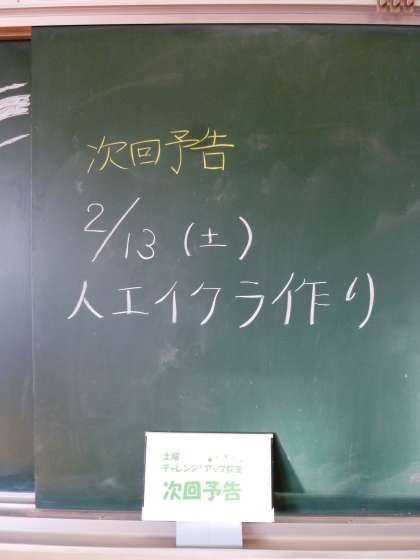 次回予告
2/13（土）
人工イクラ作り
土曜
チャレンジアップ教室
次回予告